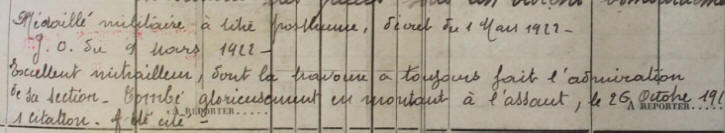 Médaillé militaire à titre posthume, décret du 1 Mars 1922 -
J. O. du 9 Mars 1922 -
Excellent mitrailleur, dont la bravoure a toujours fait l'admiration
de sa section - Tombé glorieusement en montant à l'assaut, le 26 Octobre 191
A REPORTER
A REPORTER
1 citation - été cité -